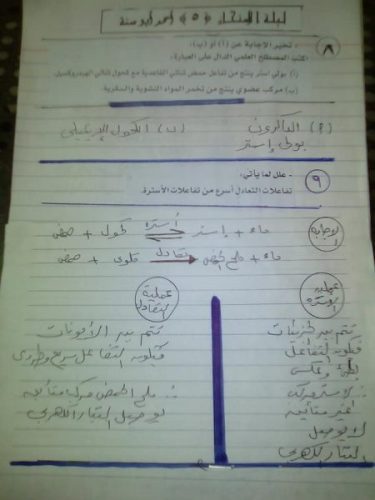 ليلة الامتحان (٥) أحمد أبو سنة
٨ - تخير الإجابة عن (أ) أو (ب):
اكتب المصطلح العلمي الدال على العبارة:
(أ) بولي استر ينتج من تفاعل حمض ثنائي القاعدية مع كحول ثنائي الهيدروكسيل
(ب) مركب عضوي ينتج من تخمر المواد النشوية والسكرية.
(أ) الداكرون (ب) الكحول الإيثيلي
بولي إستر
٩ - علل لما يأتي:
تفاعلات التعادل أسرع من تفاعلات الأسترة.
الإجابة
حمض + كحول أسترة إستر + ماء
حمض + قلوي تعادل ملح الحمض + ماء
عملية الأسترة
تتم بين الجزيئات
فتكون التفاعل
بطئ وعكسى
الاستر مركب
غير متأين
لا يوصل
التيار الكهربي
عملية التعادل
تتم بين الأيونات
فتكون التفاعل سريع وطردى
ملح الحمض مركب متأين
يوصل التيار الكهربي